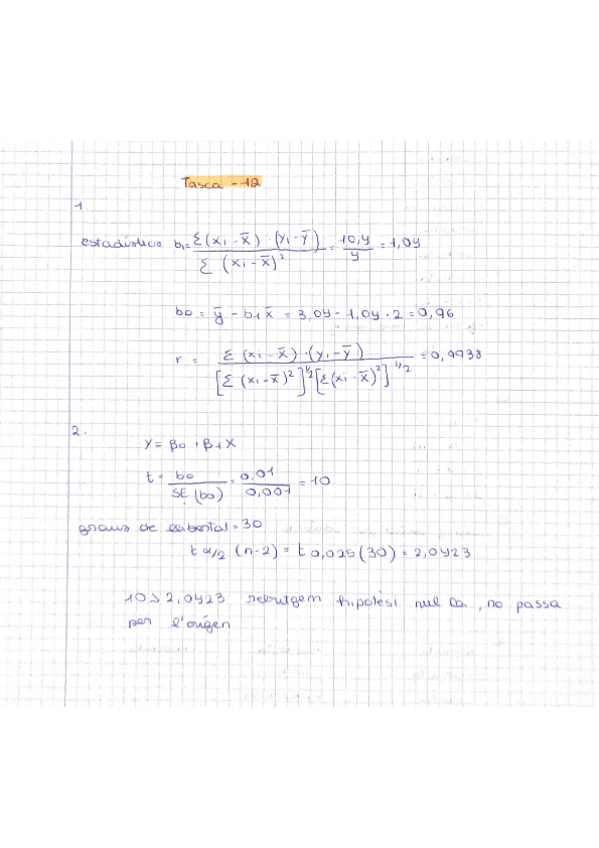 Tasca - 12
1.
estadístics b₁ = Σ(xᵢ - x̄) · (yᵢ - ȳ) / Σ (xᵢ - x̄)² = 10,4 / 4 = 1,04
b₀ = ȳ - b₁ x̄ = 3,04 - 1,04 · 2 = 0,96
r = Σ (xᵢ - x̄) · (yᵢ - ȳ) / [Σ (xᵢ - x̄)²]^1/2 [Σ(xᵢ - x̄)²]^1/2 = 0,9938
2.
Y = β₀ + β₁ X
t = b₀ / SE (b₀) = 0,01 / 0,001 = 10
graus de llibertat = 30
t α/2 (n-2) = t 0,025 (30) = 2,0423
10 > 2,0423 rebutgem hipotèsi nul·la, no passa
per l'origen